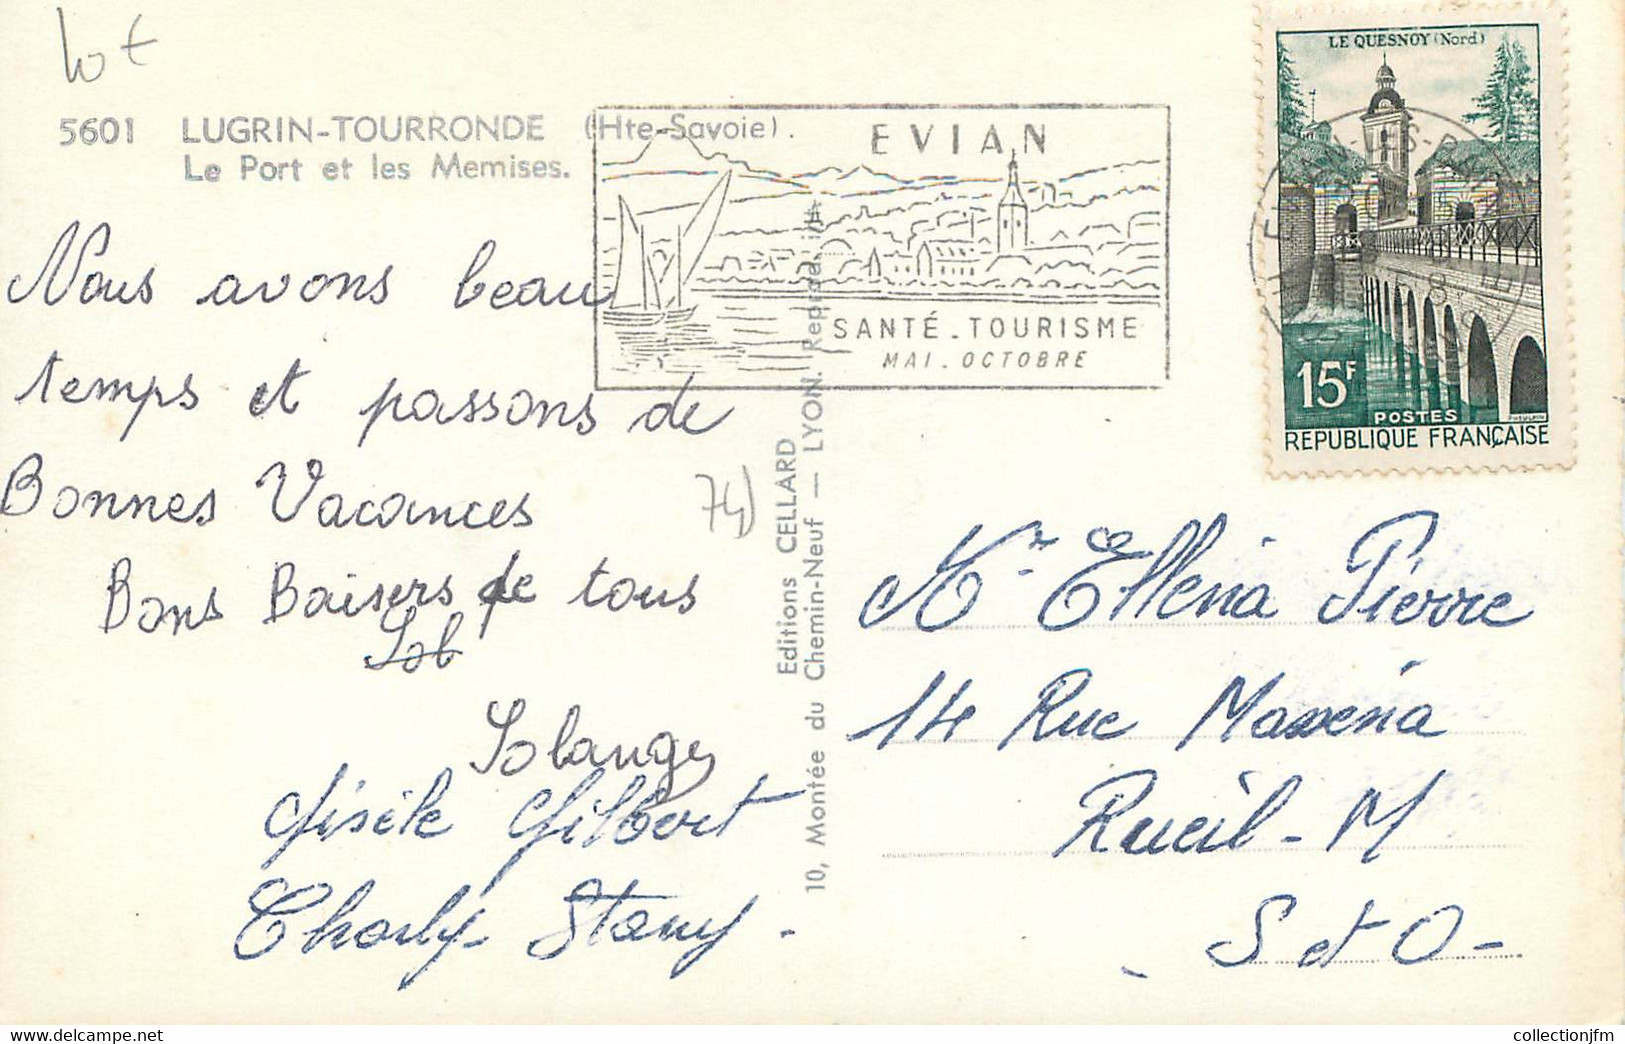 lot
5601 LUGRIN-TOURRONDE (Hte-Savoie).
Le Port et les Memises.
Nous avons beau
temps et passons de
Bonnes Vacances
Bons Baisers de tous
Sol
Solange
Gisèle Gilbert
Charly Stany.
74)
EVIAN
SANTÉ. TOURISME
MAI. OCTOBRE
Editions CELLARD
10, Montée du Chemin-Neuf — LYON. Reprod. int.
LE QUESNOY (Nord)
15F
POSTES
REPUBLIQUE FRANÇAISE
Mr Ellena Pierre
14 Rue Massena
Rueil-M
S et O-
collectionjfm